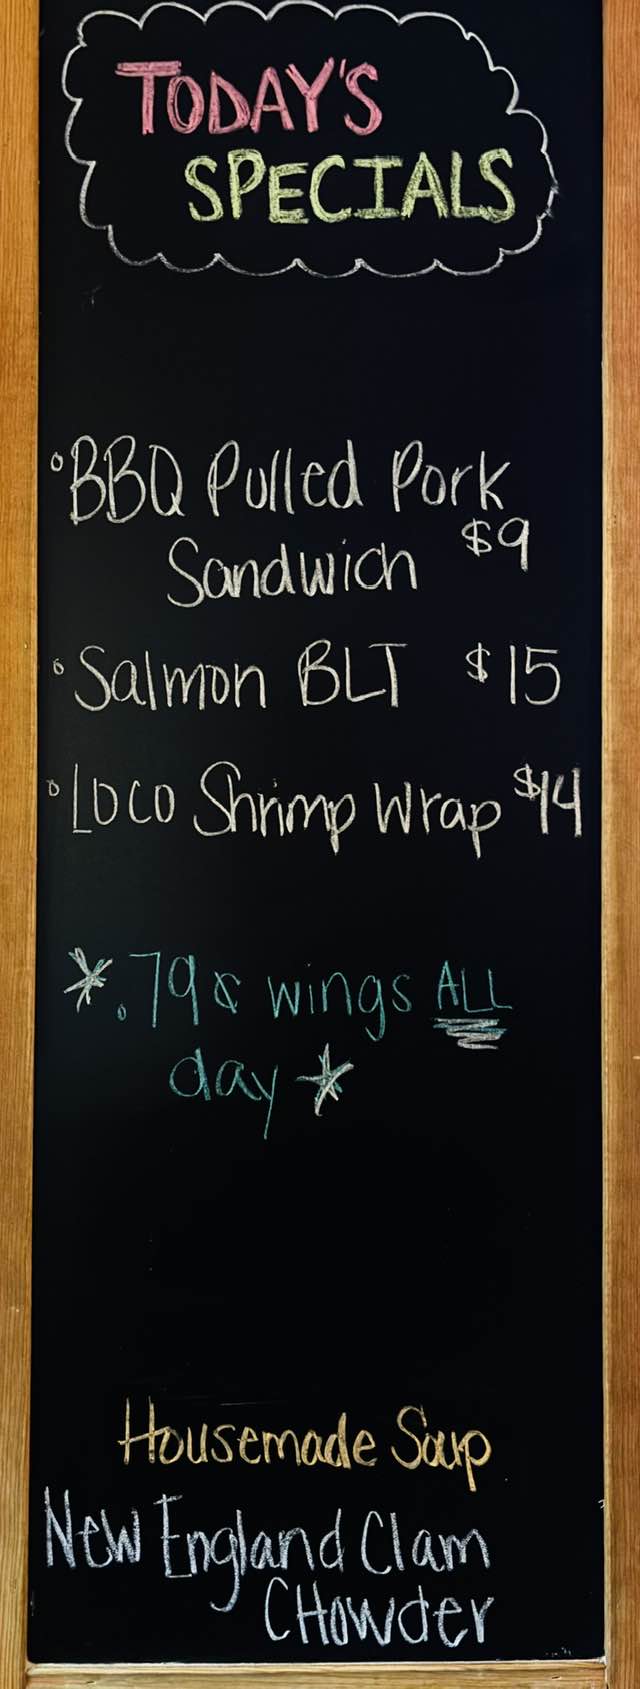 TODAY'S
SPECIALS
°BBQ Pulled Pork
Sandwich $9
°Salmon BLT $15
°Loco Shrimp Wrap $14
*.79¢ wings ALL
day*
Housemade Soup
New England Clam
CHowder